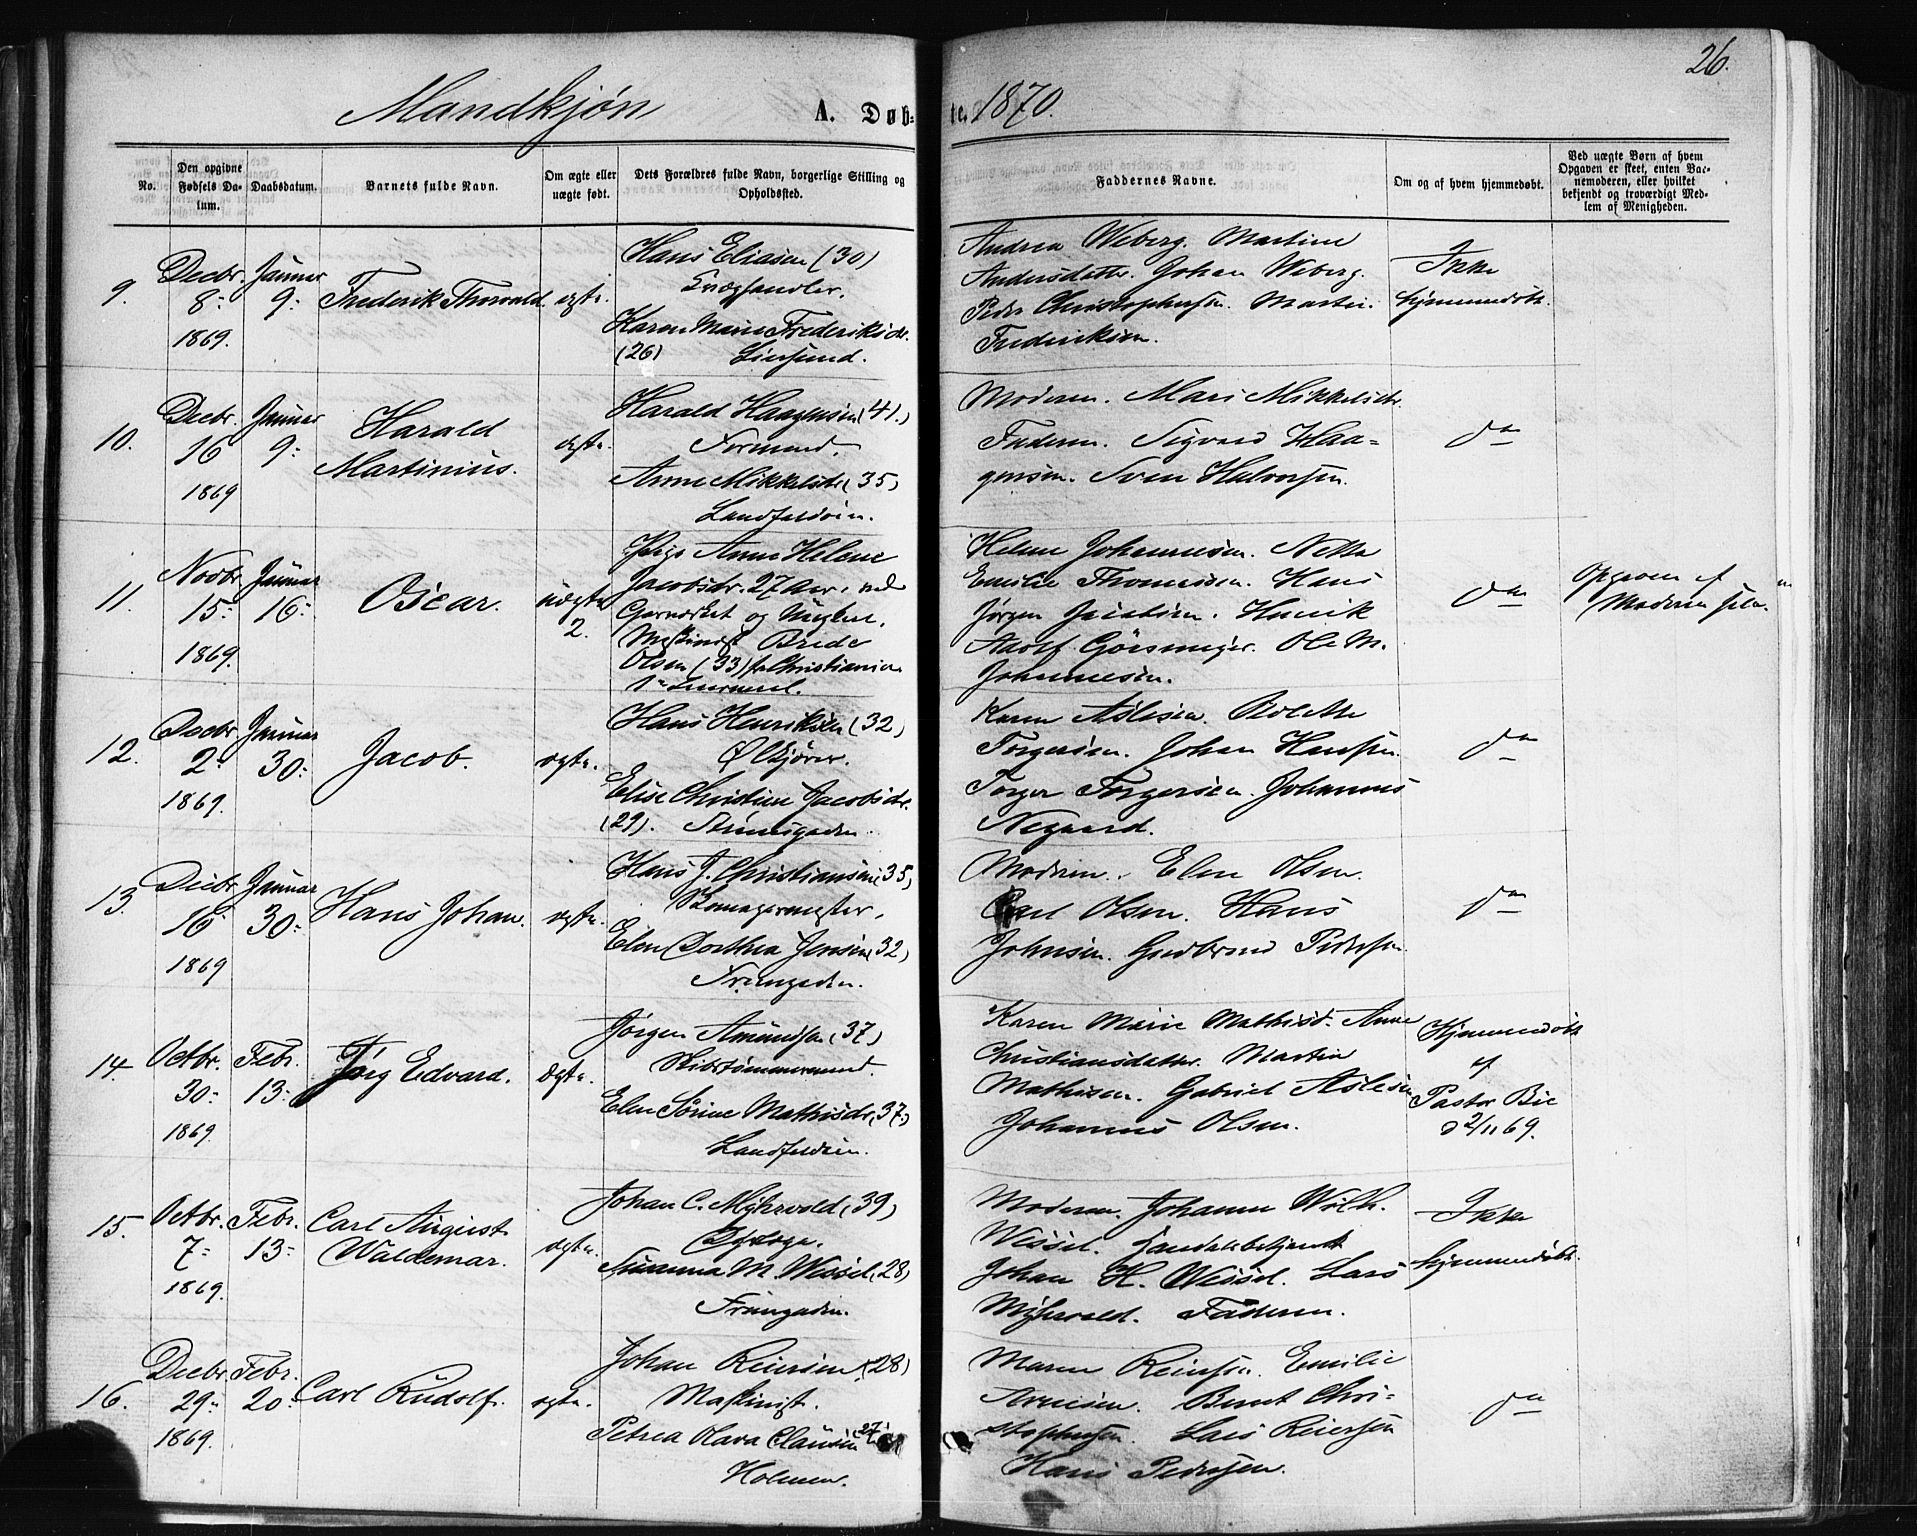 26.
Mandkjøn A. Døbte. 1870.
No.
Den opgivne Fødsels Datum.
Daabsdatum.
Barnets fulde Navn.
Om ægte eller uægte født.
Dets Forældres fulde Navn, borgerlige Stilling og Opholdsted.
Faddernes Navne.
Om og af hvem hjemmedøbt.
Ved uægte Børn af hvem
Opgaven er skeet, enten Bar-
nemoderen, eller hvilket
bekjendt og troværdigt Med-
lem af Menigheden.
9.
Decbr.
8:
1869.
Januar
9:
Frederik Thorvald
ægte.
Hans Eliasen (30)
Karen Marie Frederiksdr.
(26) Liersund.
Andrea Weberg. Martine
Andersdatter. Johan Weberg.
Peder Christophersen. Martin
Frederiksen.
Ikke
hjemmedøbt.
10.
Decbr.
16
1869
Januar
9:
Harald
Martinius.
ægte.
Harald Haagensen (41.)
Formand.
Anne Mikkelsdr (35)
Landfaldøen.
Moderen. Mari Mikkelsdr.
Faderen. Sigvard Haa-
gensen. Sven Halvorsen.
do
11.
Novbr
15:
1869.
Januar
16:
Oscar.
uægte
2.
Pige Anne Helene
Jacobsdr. 27 Aar, ved
og Ungkarl,
Maskinist Brede
Olsen (33) fra Christiania
Helene Johannesen. Netta
Emilie Thomesen. Hans
Jørgen Jacobsen. Henrik
Adolf Ole M.
Johannesen.
do
Opgaven af
Moderen selv.
12.
Decbr
2:
1869.
Januar
30:
Jacob.
ægte.
Hans Henriksen (32)
Ølkjører.
Elise Christine Jacobsdr.
(29). Strømsgaden.
Karen Aslesen.
Torgersen. Johan Hansen.
Torger Torgersen. Johannes
Negaard.
do
13.
Decbr
16
1869
Januar
30:
Hans Johan.
ægte.
Hans J. Christiansen (35)
Skomagermester.
Elen Dorthea Jensen (32)
Trangaden.
Moderen. Elen Olsen.
Carl Olsen. Hans
Johnsen. Gudbrand Pedersen.
do
14.
Octbr.
30:
1869.
Febr.
13:
Jørg Edvard.
Ægte.
Jørgen Amundsen (37)
Skibstømmermand.
Elen Sørine Mathisdr. (37)
Landfaldøen.
Karen Marie Mathisd. Anne
Christiansdatter. Martin
Mathisen. Gabriel Aslesen
Johannes Olsen.
Hjemmedøbt
af
Pastor Bie
d 2/11 69.
15.
Octbr.
7:
1869.
Febr.
13:
Carl August
Waldemar.
ægte.
Johan C. Myhrvold (39)
Susanna M. Wessel (28)
Trangaden.
Moderen. Johanne Wilh.
Wessel. Handelsbetjent
Johan H. Wessel. Lars
Myhrvold. Faderen.
Ikke
hjemmedøbt.
16.
Decbr
29:
1869.
Febr.
20:
Carl Rudolf.
ægte.
Johan Reiersen (28)
Maskinist.
Petrea Olava Clausen (27)
Holmen.
Maren Reiersen. Emilie
Arnesen. Bernt Chri-
stophersen. Lars Reiersen
Hans Pedersen.
do